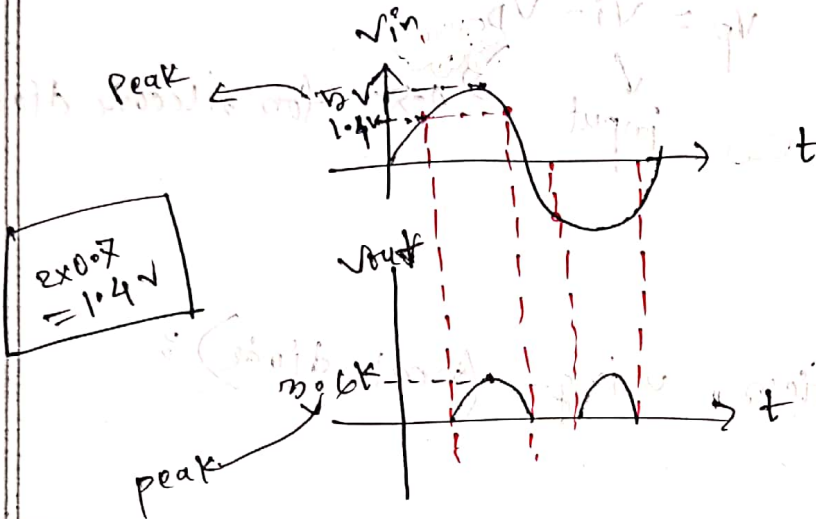 Vin
Peak
5V
1.4V
t
2x0.7
= 1.4 V
Vout
3.6V
t
peak